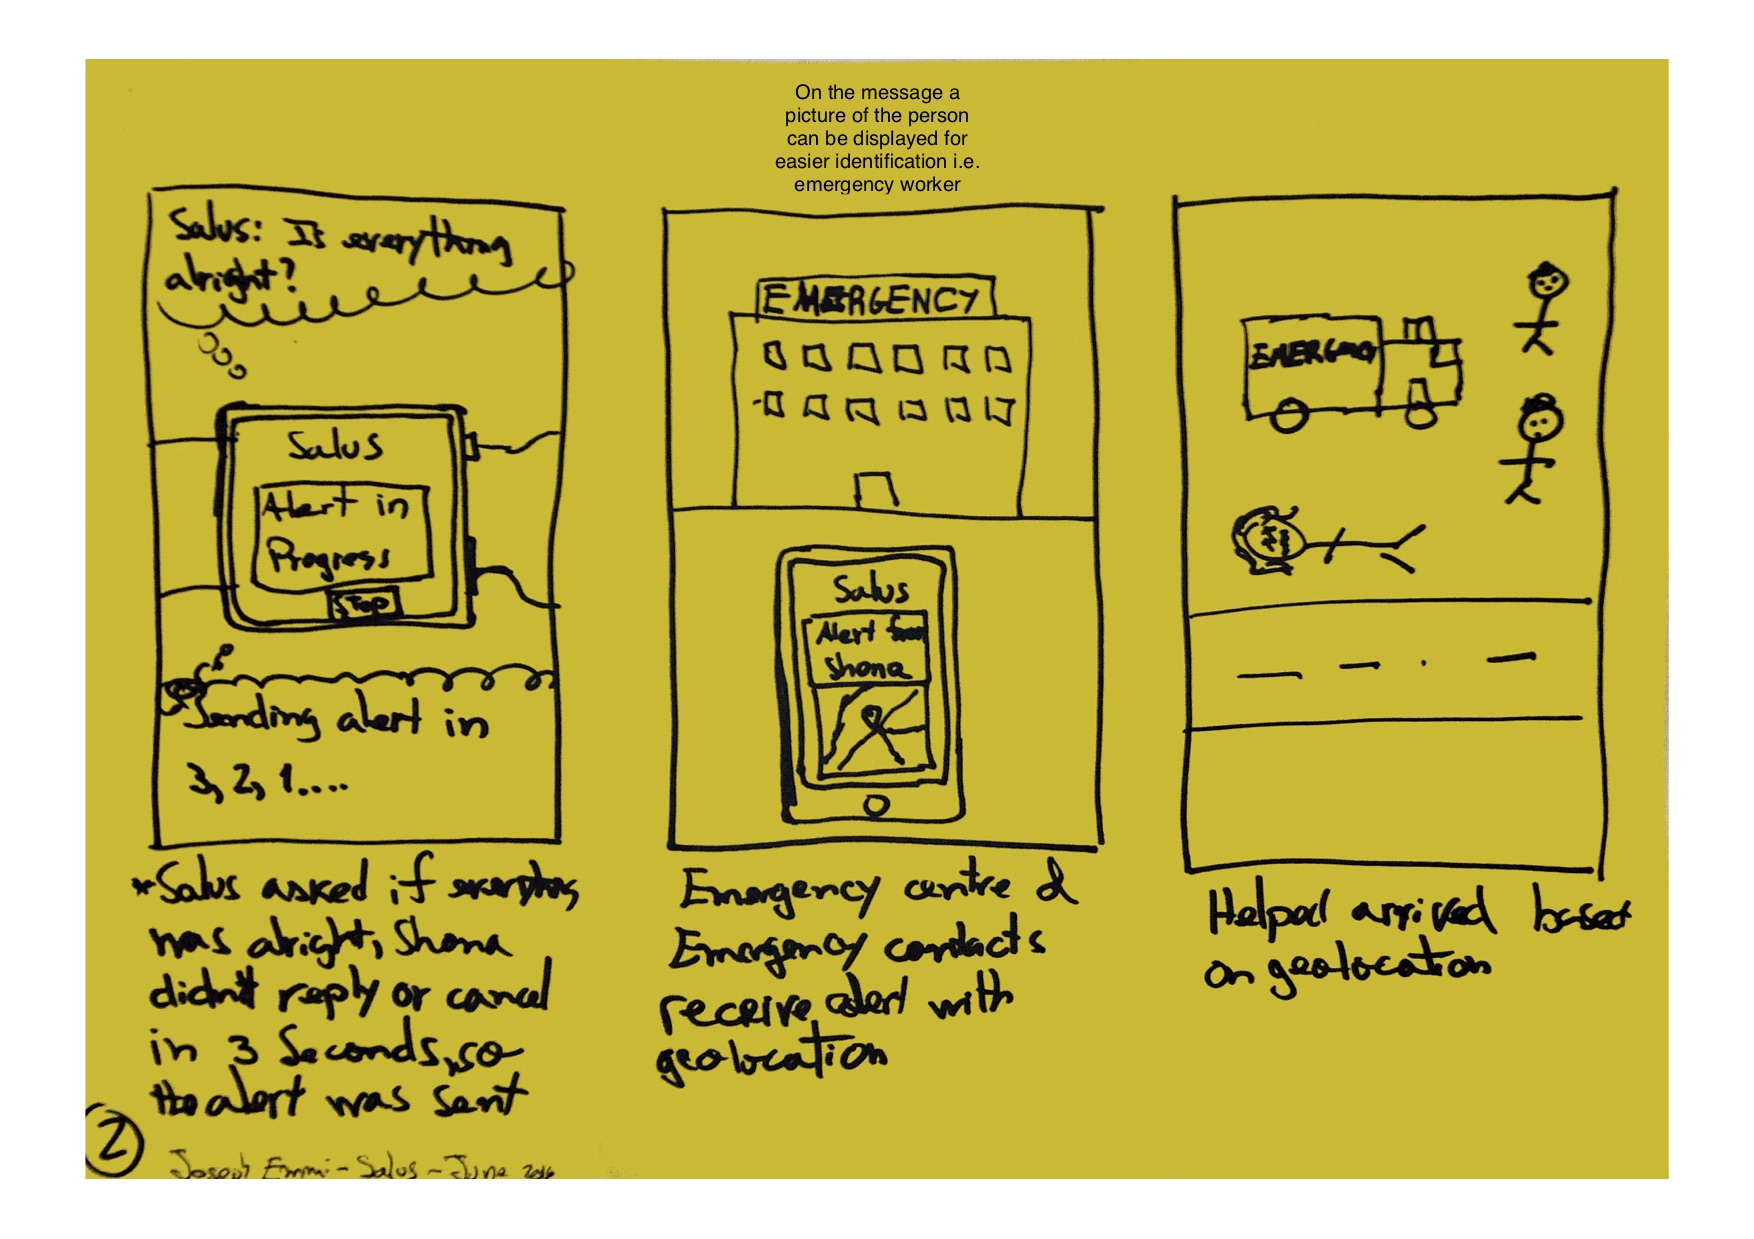 On the message a
picture of the person
can be displayed for
easier identification i.e.
emergency worker
Salus: Is everything
alright?
Salus
Alert in
Progress
STOP
Sending alert in
3, 2, 1....
*Salus asked if everything
was alright, Shona
didn't reply or cancel
in 3 Seconds, so
the alert was sent
EMERGENCY
Salus
Alert from
Shona
Emergency centre &
Emergency contacts
receive alert with
geolocation
EMERGENCY
Helped arrived based
on geolocation
2
Joseph Emmi - Salus - June 2016